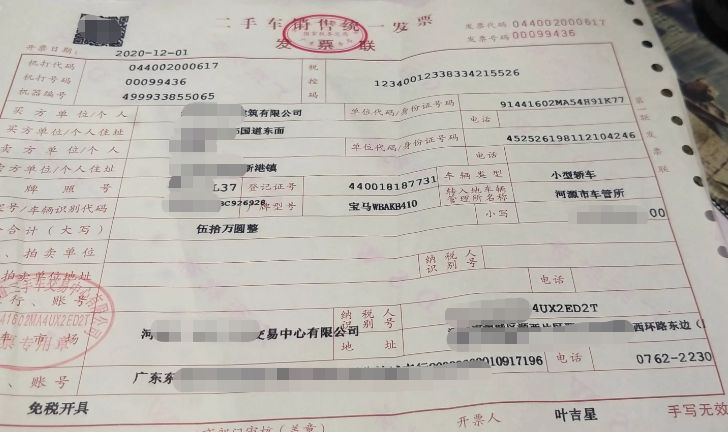 二手车销售统一发票
发票联
发票代码 044002000617
发票号码 00099436
开票日期: 2020-12-01
机打代码 044002000617
机打号码 00099436
机器编号 499933855065
税控码 12340012338334215526
买方单位/个人 建筑有限公司 单位代码/身份证号码 91441602MA54H91K77
买方单位/个人住址 国道东面 电话
卖方单位/个人 单位代码/身份证号码 452526198112104246
卖方单位/个人住址 新港镇 电话
牌照号 L37 登记证号 440018187731 车辆类型 小型轿车
架号/车辆识别代码 BC926928 厂牌型号 宝马WBAKB410 转入地车辆管理所名称 河源市车管所
合计(大写) 伍拾万圆整 小写 00
、拍卖单位
拍卖单位地址 纳税人识别号
行、账号 电话
市场 河 交易中心有限公司 纳税人识别号 4UX2ED2T
地址 西环路东边(
、账号 广东东 10917196 电话 0762-2230
免税开具
开票人 叶吉星 手写无效
部门审核(盖章)
第一联 发票联
二手车交易
41602MA4UX2ED2T
票专用章